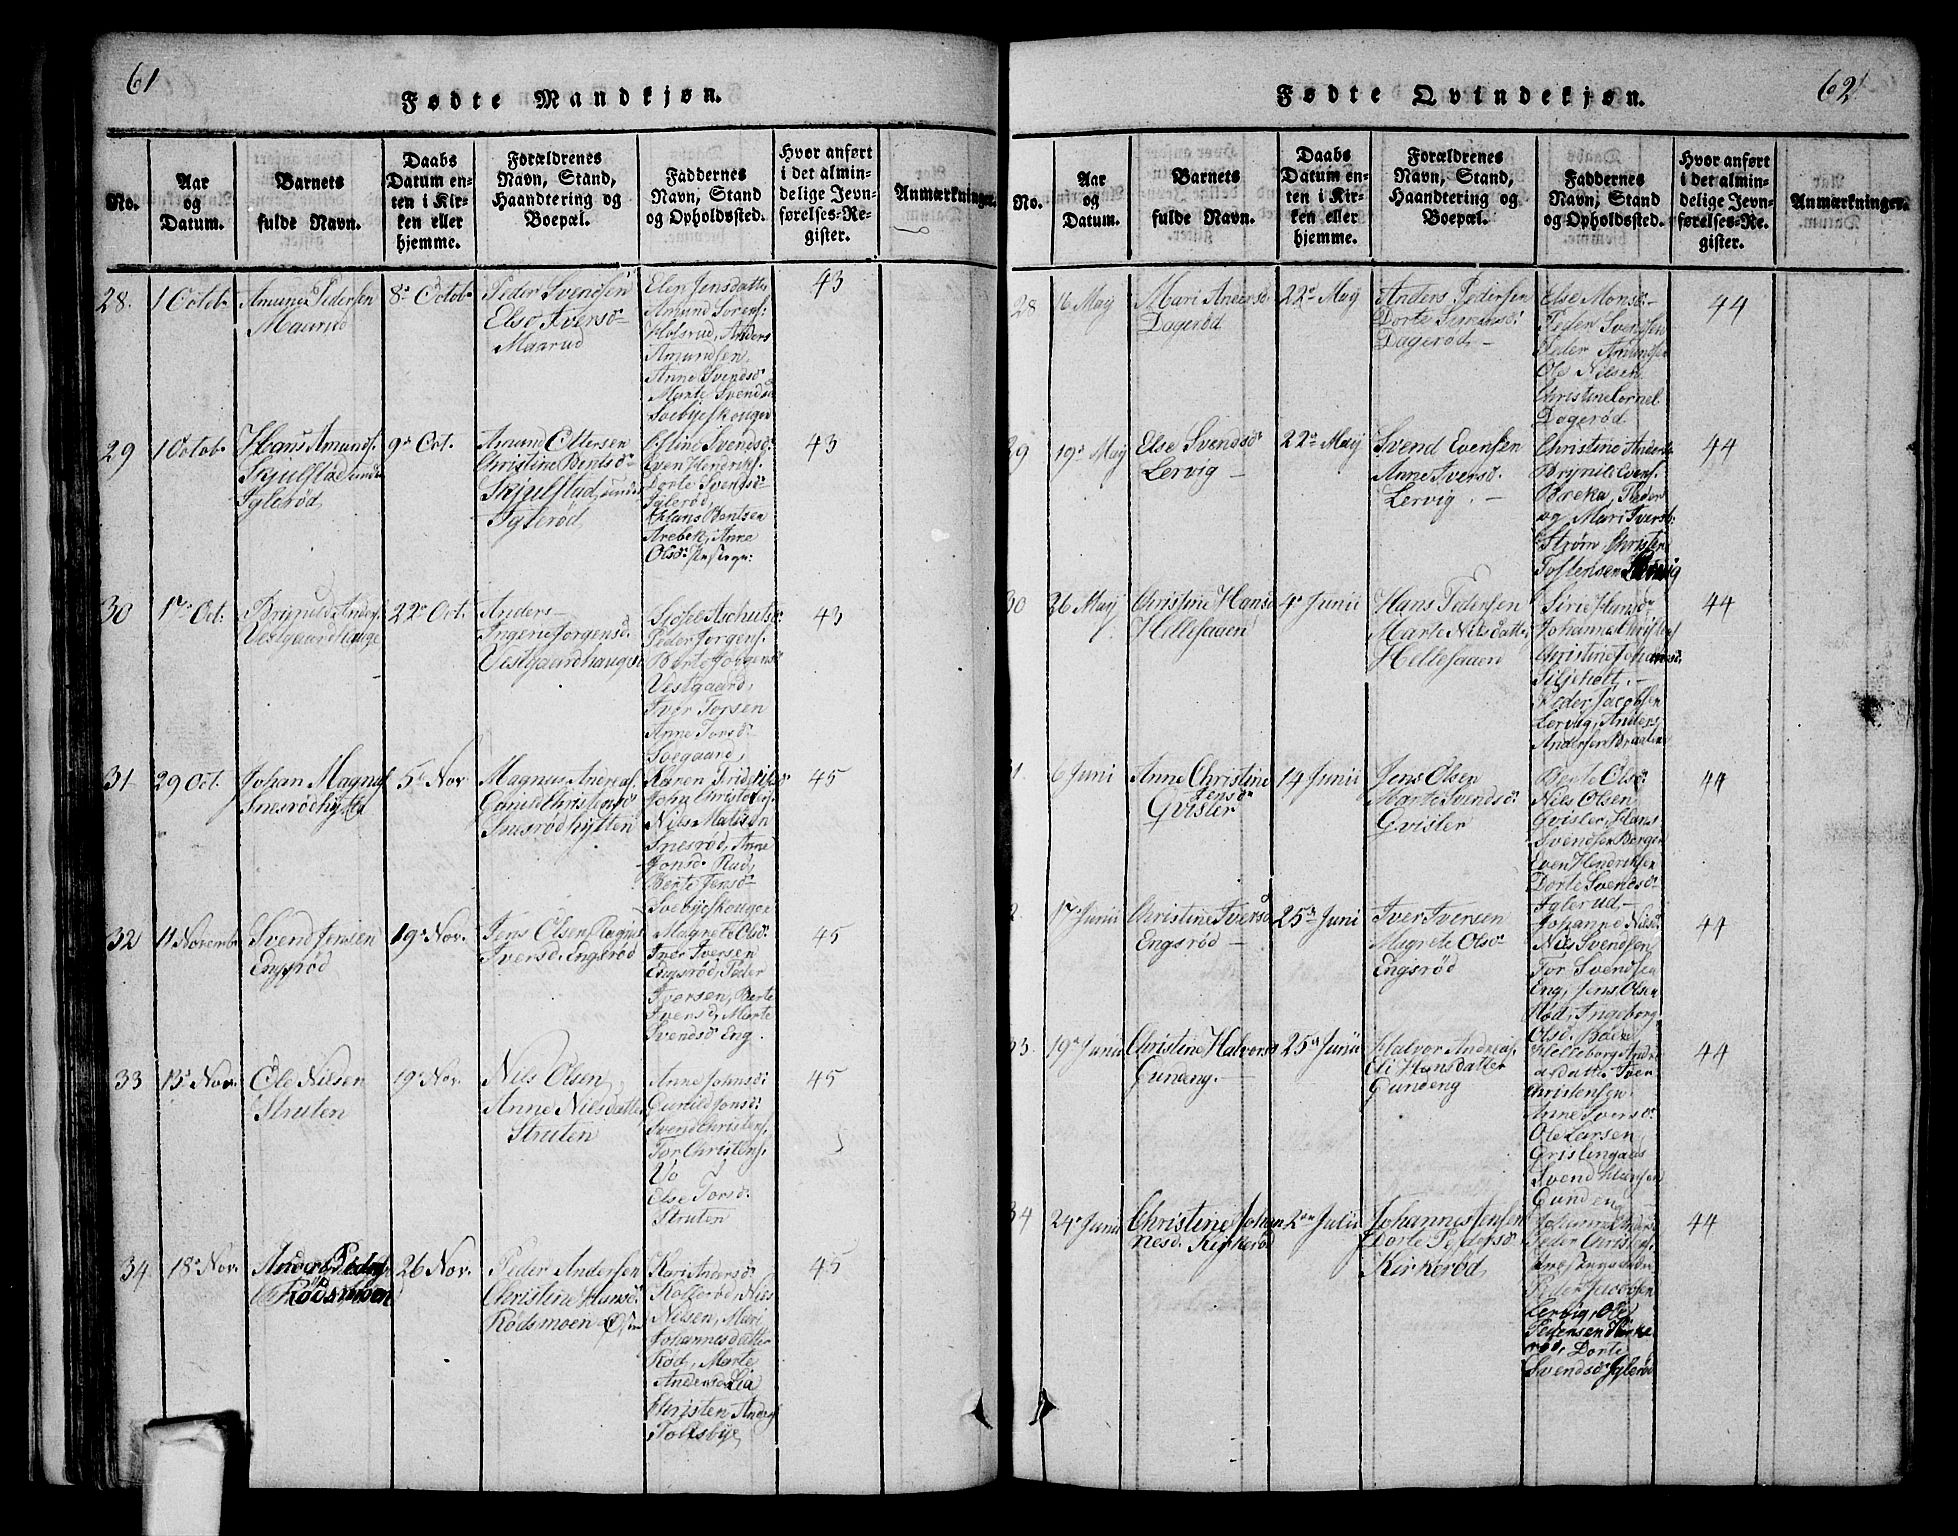 61
Fødte Mandkjøn.
No.
Aar
og
Datum.
Barnets
fulde Navn.
Daabs
Datum en-
ten i Kir-
ken eller
hjemme.
Forældrenes
Navn, Stand,
Haandtering og
Boepæl.
Faddernes
Navn, Stand
og Opholdsted.
Hvor anført
i det almin-
delige Jevn-
førelses-Re-
gister.
Anmærkninger.
28.
1 Octob
Amund Pedersen
Maarud
8de Octob
Peder Svendsen
Else Iversd
Maarud
Elen Jensdatter
Amund Sorens:
Holsrud, Anders
Amundsen
Anne Svendsd
Marte Svendsd
Soebyeskougen
43
29
1 Octob
Hans Amunds.
Skjulstad under
Iglerød
9de Oct.
Amund Ottersen
Christine Bentsd
Skjulstad, under
Iglerød
Even Hendriks.
Dorte Svendsd
Iglerød,
Hans Bentsen
Arebek, Anne
43
30
17de Oct:
Brynild Anders
Vestgaardhauge
22de Oct.
Anders
Ingerie Jorgensd.
Vestgaardhauge
Peder Jorgens.
Berte Jorgensd
Vestgaard,
Iver Torsen
Anne Torsd
Soegaard,
43
31
29 Oct.
Johan Magnus
Snesrødhytta
5te Nov
Magnus Andreas.
Gunild Christensd
Snesrødhytten
Karen Fridriksd
John Christofers.
Niels Madsen
Snesrød, Anne
Jonsd. Rud,
Berte Jensd
Soebyeskougen
45
32
11 Novemb
Svend Jensen
Engsrød
19de Nov.
Jens Olsen Ragne
Iversd. Engsrød
Magrete Olsd.
Iver Iversen
Engsrød, Peder
Iversen, Berte
Iversd, Marte
Svendsd Eng.
45
33
15de Nov.
Ole Nilsen
Struten
19de Nov.
Nils Olsen,
Anne Nilsdatter
Struten
Anne Johnsd:
Gunild Jonsd:
Svend Christens.
Tor Christens.
Vo
Else Torsd.
Struten
45
34
18de Nov.
Anders Peders
Rødsmoen
26 Nov.
Peder Andersen
Christine Hansd.
Rødsmoen
Kari Andersd
Kollerød, Niels
Nilsen, Mari
Johannesdatter
Rød, Marte
Andersd Lia
Christen Anders
Tolksbye
45
62
Fødte Qvindekjøn.
No.
Aar
og
Datum.
Barnets
fulde Navn.
Daabs
Datum en-
ten i Kir-
ken eller
hjemme.
Forældrenes
Navn, Stand,
Haandtering og
Boepæl.
Faddernes
Navn, Stand
og Opholdssted.
Hvor anført
i det almin-
delige Jevn-
førelses-Re-
gister.
Anmærkninger.
28
6 Maÿ
Mari Andersd
Dagerød
22de Maÿ
Anders Pedersen
Dorte Simensd:
Dagerød
Else Monsd
Peder Svendsen
Peder Amundsen
Ole Nilsen
Christine Cornel
Dagerød
44
29
19de Maÿ
Else Svendsd
Lervig
22de Maÿ
Svend Evensen
Anne Iversd.
Lervig.
Christine Anders
Brynild Evens.
Brekke, Peder
og Mari Iversd.
Strøm Christen
Tostensen Lervig
44
30
26 Maÿ
Christine Hansd
Hillesaaen
4de Junii
Hans Pedersen
Marte Nilsdatter
Hellesaaen
Sirie Hansd
Johannes Christens
Christine Johannesd.
Siljeholt.
Peder Jacobsen
Lervig, Anders
Andersen Braaten
44
1
6 Juni
Anne Christine
Jensd
Gvisler
14 Junii
Jens Olsen
Marte Svendsd:
Gvisler
Berte Olsd
Niels Olsen
Gvisler, Hans
Svendsen Borgen
Even Hendriksen
Dorte Svendsd
Iglerud
44
2
17de Junii
Christine Iversd
Engsrød
25de Juni
Iver Iversen
Magrete Olsd
Engsrød
Johanne Nilsd.
Nils Svendsen
Tor Svendsen
Eng, Jens Olsen
Rød, Ingeborg
Olsd. Bøen
44
33.
19de Junii
Christine Halvorsd
Gundeng.
25de Junii
Halvor Andreas.
Eli Hansdatter
Gundeng
Helleborg Andre
asdatter Iver
Christensen
Anne Iversd
Ole Larsen
Gristengaas
Svend Hansen
Gundeng
44
34
24de Junii
Christine Johan
nesd. Kirkerød
2den Julii
Johannes Jensen
Dorte Pedersd
Kirkerød
Peder Christens.
Peder Jacobsen
Lervig, Ole
Pedersen Kirke
rød, Dorte
Svendsd Iglerød
44